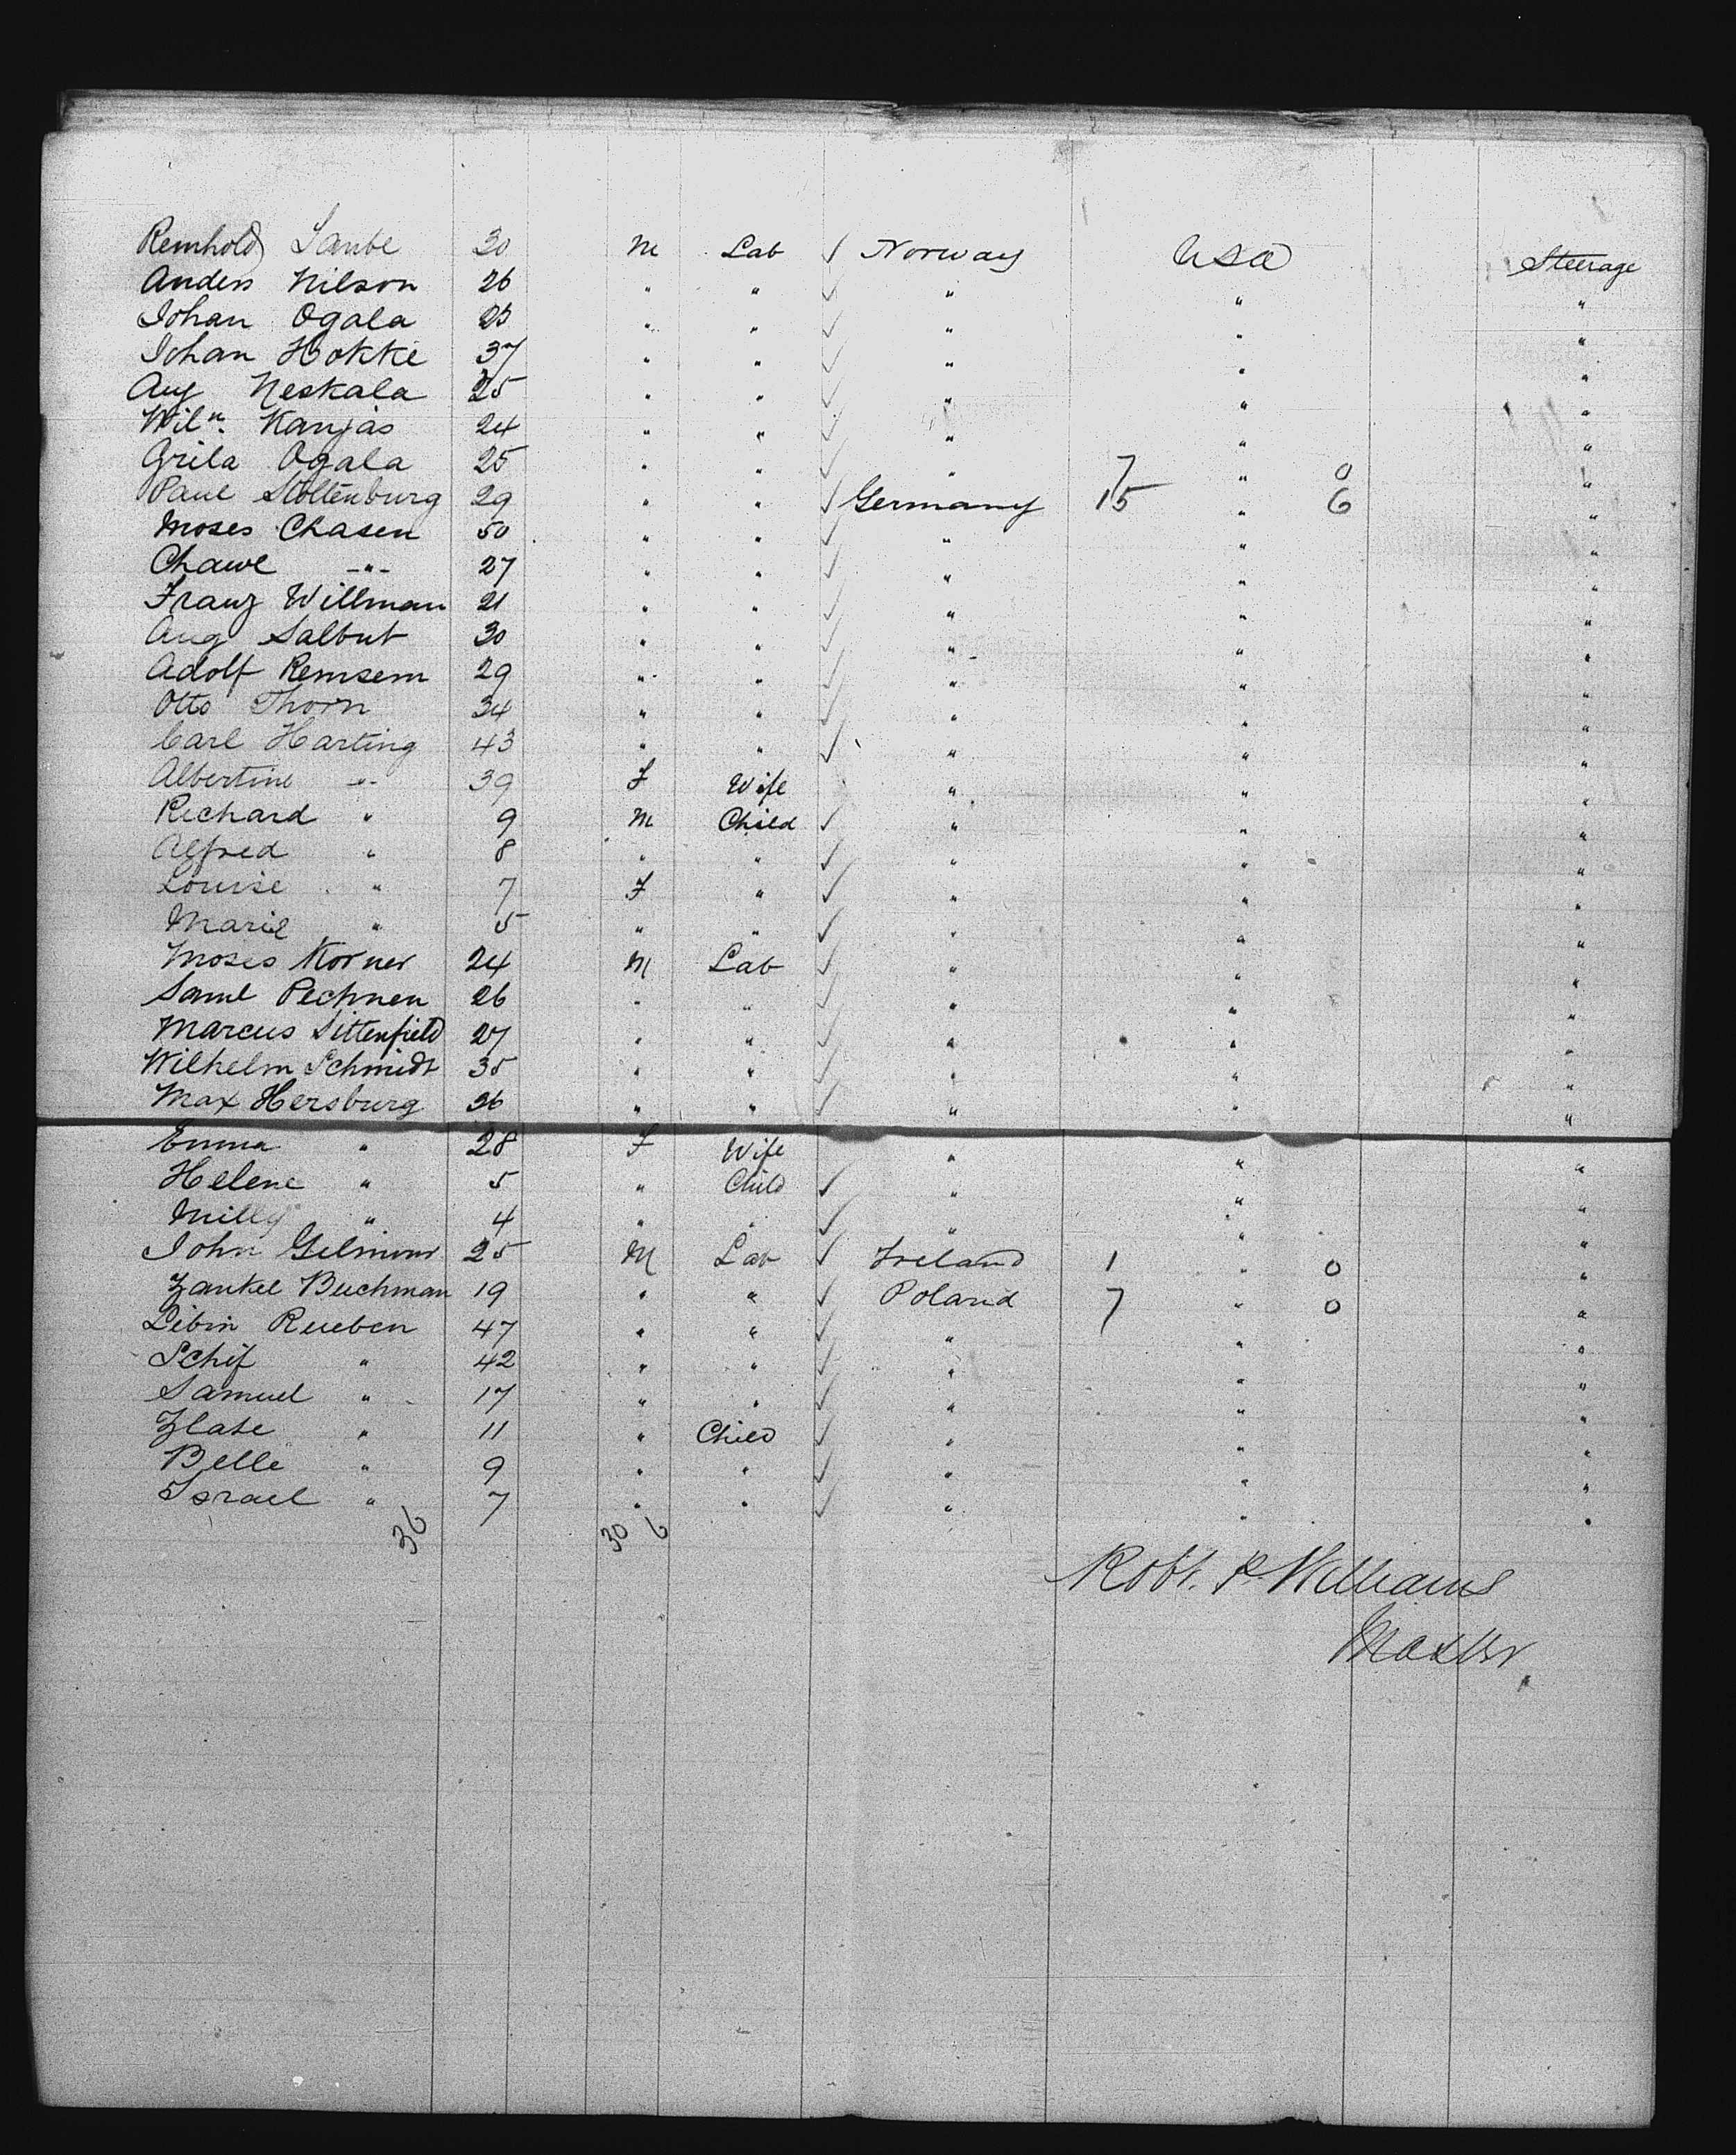 Reinhold Laube 30 M Lab ✓ Norway USA Steerage
Anders Nilson 26 " " ✓ " " "
Johan Ogala 25 " " ✓ " " "
Johan Hokke 37 " " ✓ " " "
Aug Neskala 25 " " ✓ " " "
Wilm. Kanjas 24 " " ✓ " " "
Grila Ogala 25 " " ✓ " 7 " 0 "
Paul Stoltenburg 29 " " ✓ Germany 15 " 6 "
Moses Chasen 50 " " ✓ " " "
Chawe -"- 27 " " ✓ " " "
Franz Willman 21 " " ✓ " " "
Aug Salbut 30 " " ✓ " " "
Adolf Remsem 29 " " ✓ " " "
Otto Thorn 34 " " ✓ " " "
Carl Harting 43 " " ✓ " " "
Albertine -"- 39 F Wife " " "
Richard " 9 M Child ✓ " " "
Alfred " 8 " " ✓ " " "
Louise " 7 F " ✓ " " "
Marie " 5 " " ✓ " " "
Moses Korner 24 M Lab ✓ " " "
Saml Pechnen 26 " " ✓ " " "
Marcus Sittenfield 27 " " ✓ " " "
Wilhelm Schmidt 35 " " ✓ " " "
Max Hersburg 36 " " ✓ " " "
Emma " 28 F Wife " " "
Helene " 5 " Child ✓ " " "
Milly " 4 " " ✓ " " "
John Gilmour 25 M Lab ✓ Ireland 1 " 0 "
Zankel Buchman 19 " " ✓ Poland 7 " 0 "
Libin Rueben 47 " " ✓ " " "
Schif " 42 " " ✓ " " "
Samuel " 17 " " ✓ " " "
Zlate " 11 " Child ✓ " " "
Belle " 9 " " ✓ " " "
Israel " 7 " " ✓ " " "
36 30 6
Robt. P. Williams
Master